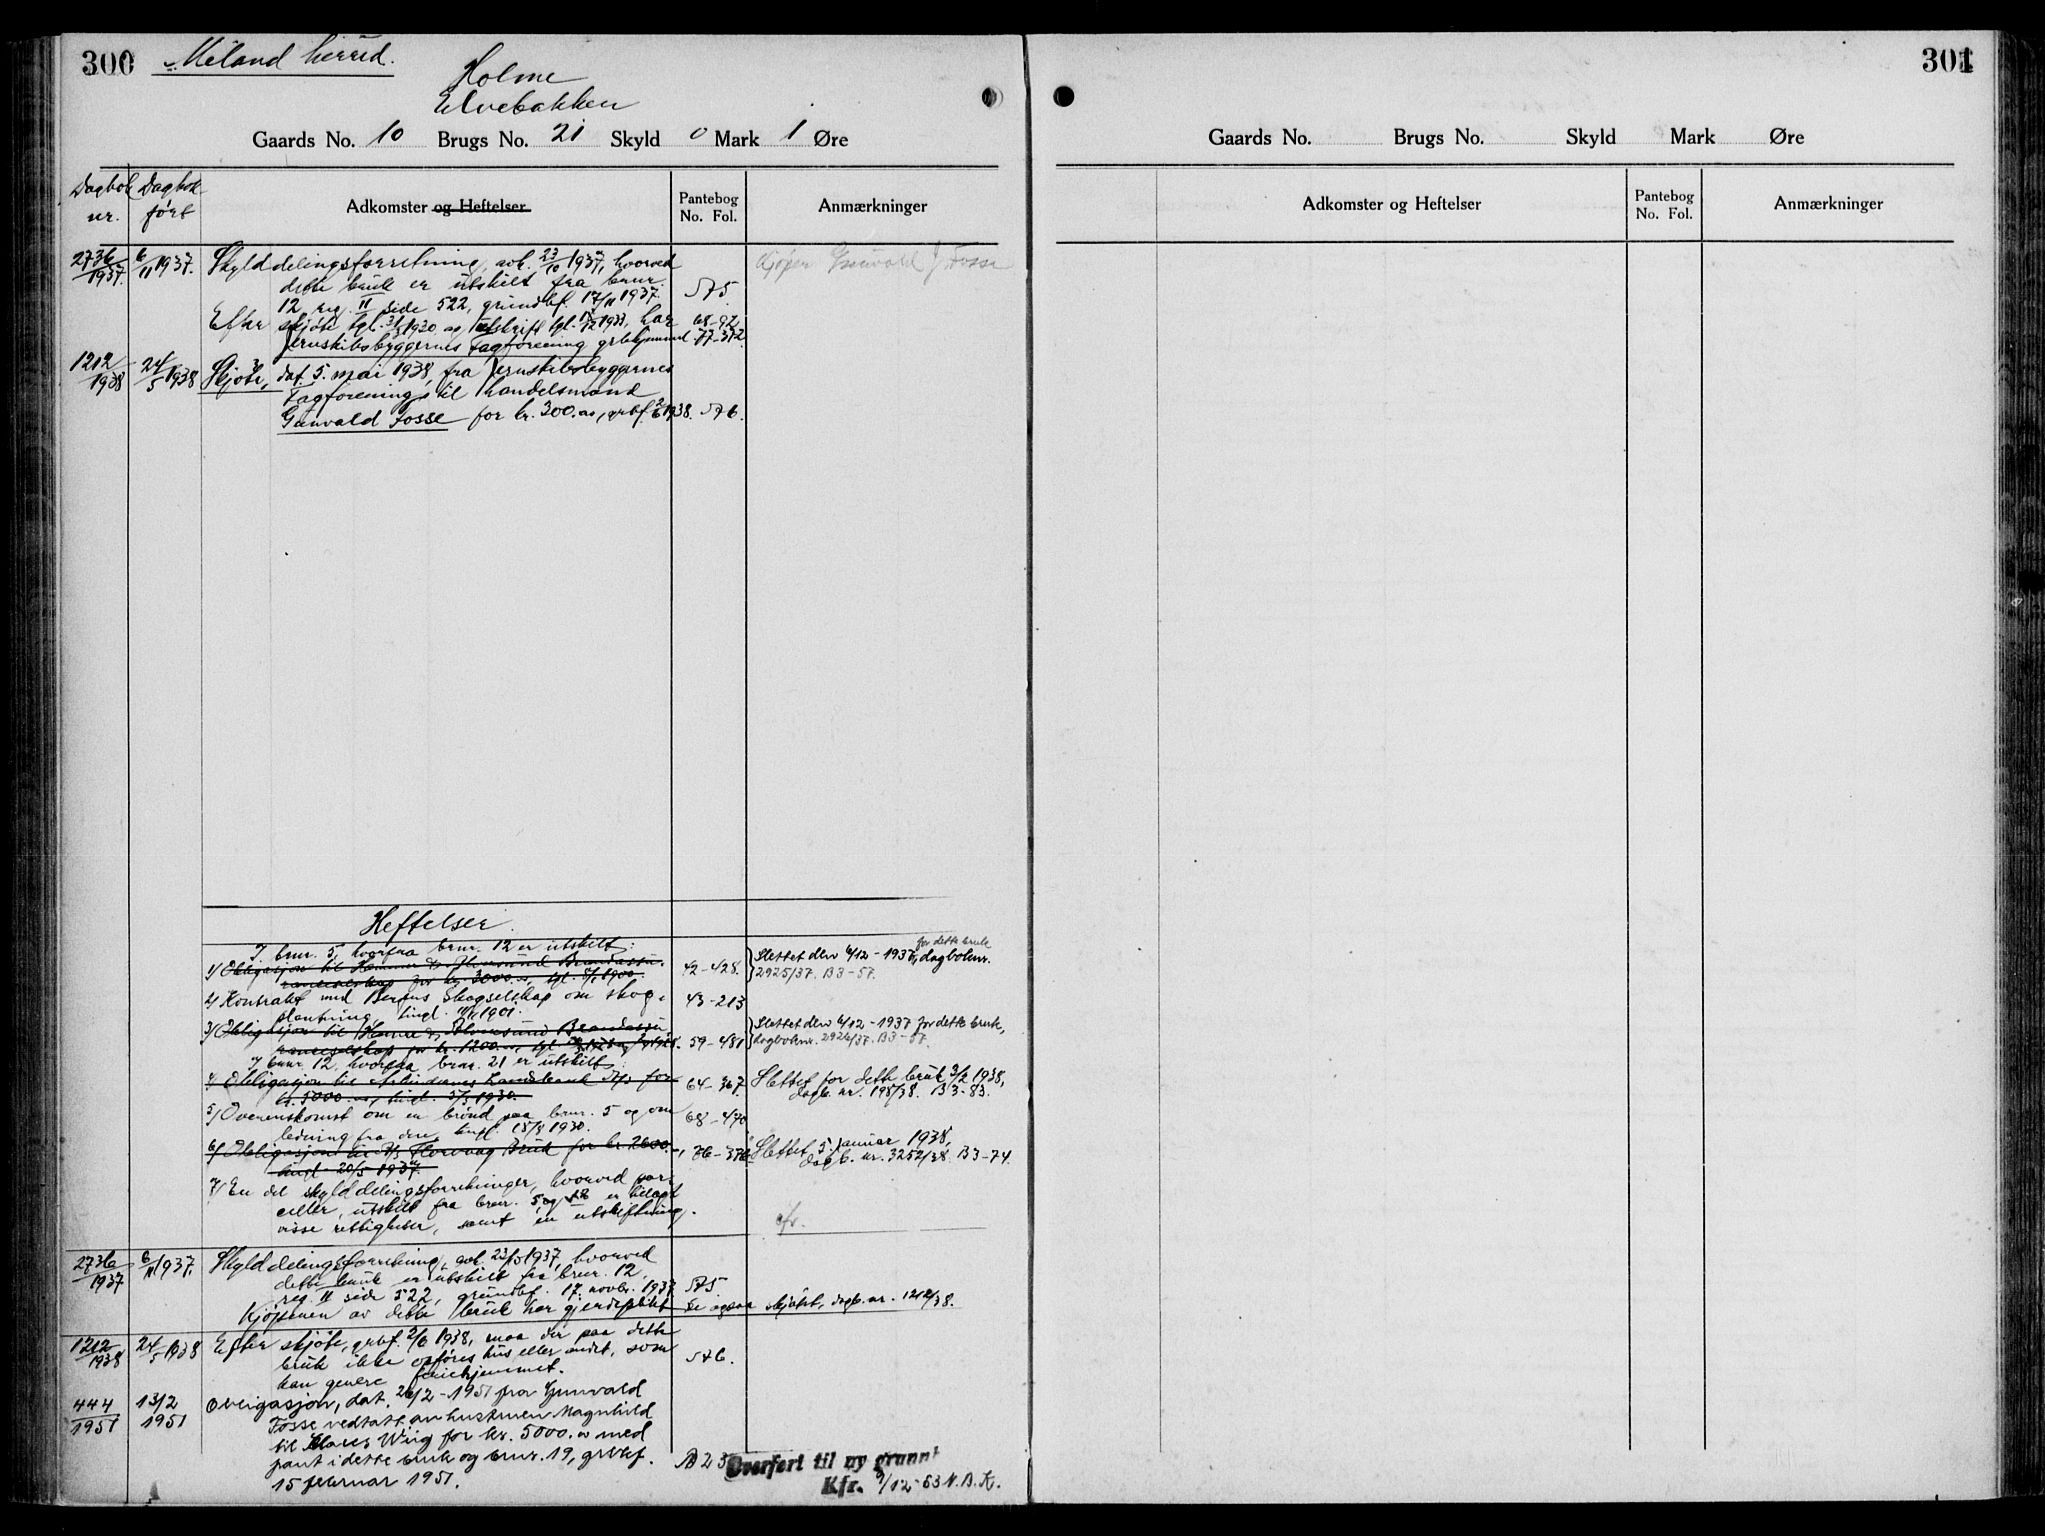 300
Meland herred.
Holme
Elvebakken
Gaards No. 10 Brugs No. 21 Skyld 0 Mark 1 Øre
Dagbok nr.
Dagbok ført
Adkomster og Heftelser
Pantebog No. Fol.
Anmærkninger
2736/1937. 6/11 1937. Skylddelingsforretning, avh. 23/10 1937, hvorved
dette bruk er utskilt fra brnr.
12, reg. II side 522, grundbf. 17/11 1937. A5.
Kjøper Gunvald J. Fosse
Efter skjøte tgl. 1930 og utskrift tgl. 1933, har 68-92
Jernskibsbyggernes Fagforening grbhjemmel 77-372.
1212/1938 24/5 1938 Skjøte, dat. 5. mai 1938, fra Jernskibsbyggernes
Fagforening til handelsmand
Gunvald Fosse for kr. 300.00, grbf. 2/6 1938. A6.
Heftelser.
I brnr. 5, hvorfra brnr. 12 er utskilt:
1) Obligasjon til Hammer & Brandassu-
ranceselskap for kr. 3000.00, tgl. 1900. 42-428. Slettet den 4/12-1937, for dette bruk dagboknr.
2925/37. B3-57.
2) Kontrakt med Bergens Skogselskap om skog- 43-213
plantning, tingl. 1901.
3) Obligasjon til Hamre & Brandassu-
ranceselskap for kr. 1200.00, tgl. 59-481 Slettet den 4/12-1937 for dette bruk,
dagboknr. 2926/37. B3-57.
I brnr. 12, hvorfra brnr. 21 er utskilt:
4) Obligasjon til Arbeidernes Landsbank A/s for 64-367. Slettet for dette bruk 3/2 1938,
kr. 5000.00, tingl. 1930. dagb. nr. 198/38. B3-83.
5) Overenskomst om en brønd paa brnr. 5 og om 68-470
ledning fra den, tingl. 18/8 1930.
6) Obligasjon til A/s Florvaag Bruk for kr. 2600.-, 76-376 Slettet 5 januar 1938,
tingl 20/5 1937. dagb. nr. 3252/38. B3-74.
7) En del skylddelingsforretninger, hvorved par-
celler, utskilt fra brnr. 5 og 12 er tillagt
visse rettigheter, samt en utskiftning.
cfr.
2736/1937 6/11 1937. Skylddelingsforretning, avh. 23/10 1937, hvorved
dette bruk er utskilt fra brnr. 12,
reg. II side 522, grundbf. 17. novbr. 1937 A5.
Kjøperen av dette bruk har gjerdeplikt Se ogsaa skjøtet, dagb. nr. 1212/38.
1212/1938 24/5 1938 Efter skjøte, grbf. 2/6 1938, maa der paa dette
bruk ikke opføres hus eller andet, som A6.
kan genere feriehjemmet.
444/1951 13/2 1951 Obligasjon, dat. 2/2-1951 fra Gunvald
Fosse vedtatt av hustruen Magnhild
til Wiig for kr. 5000.00 med
pant i dette bruk og brnr. 19, grbkf. B23
15 februar 1951.
Overført til ny grunnb
Kfr. 9/12-53 N.B.K.
301
Gaards No. Brugs No. Skyld Mark Øre
Adkomster og Heftelser
Pantebog No. Fol.
Anmærkninger